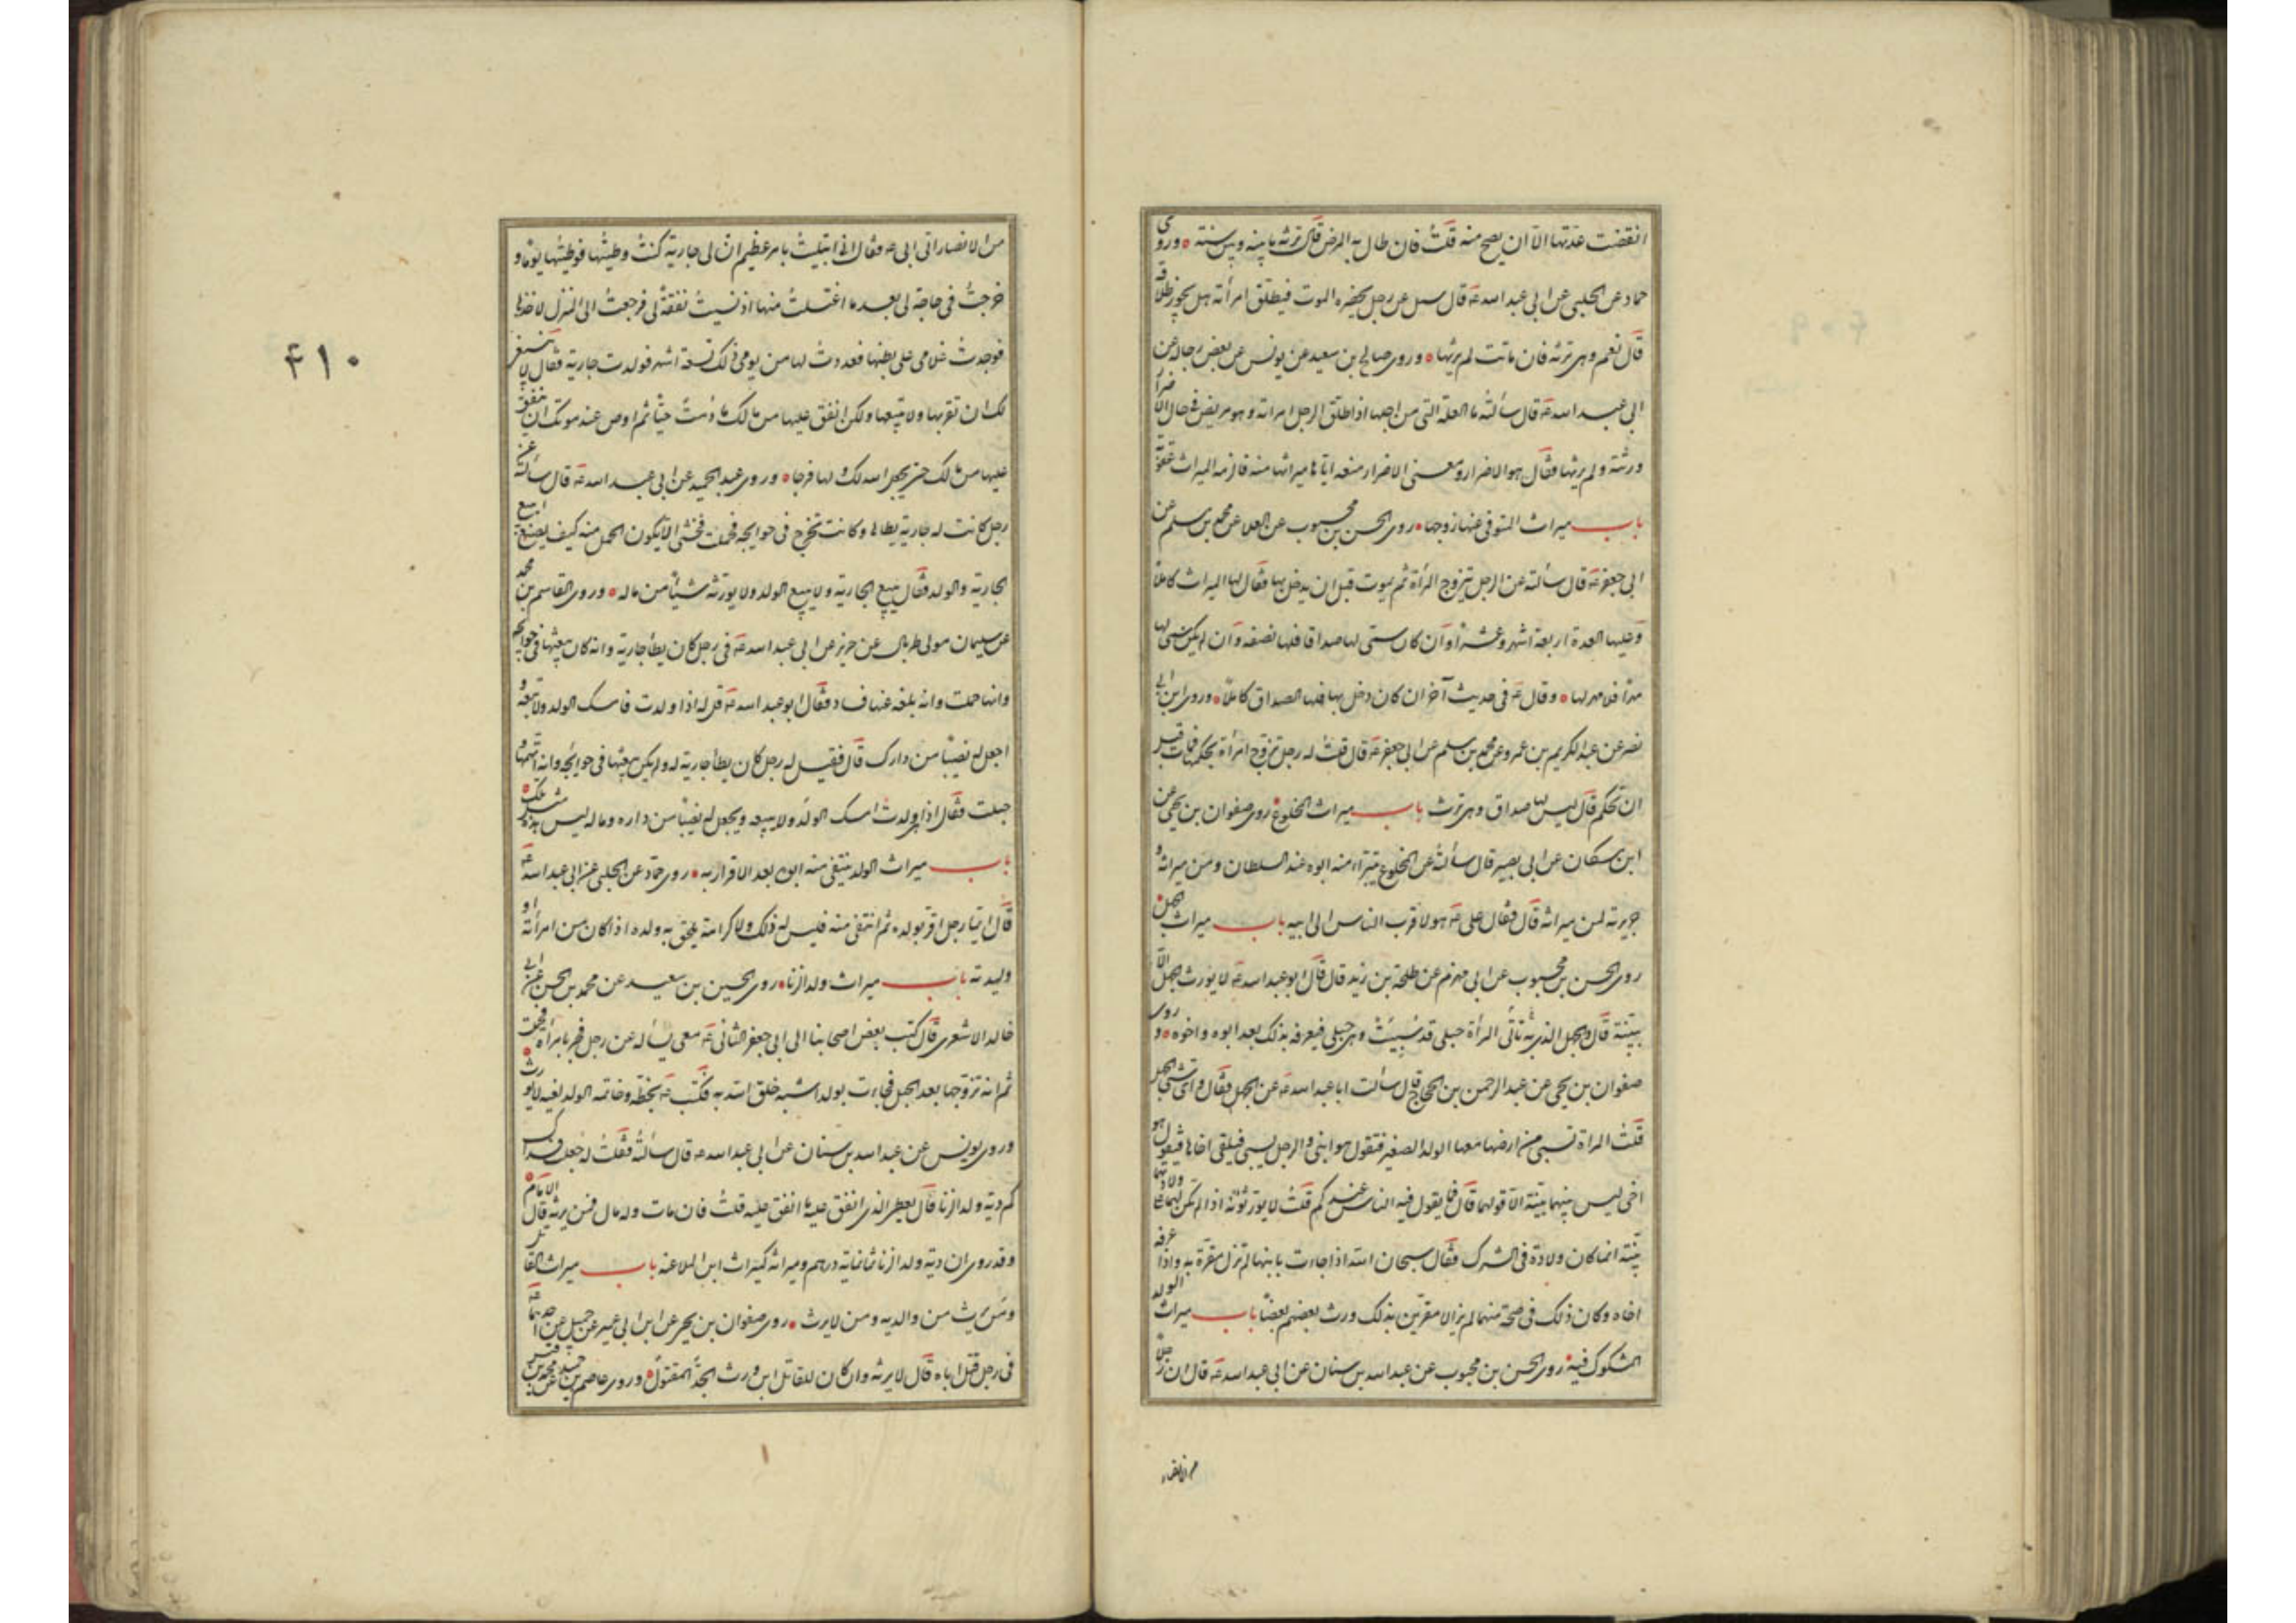 انقضت عدتها الا ان يصح منه قلت فان طال به المرض قال ترثه ما بينه وبين سنة وروى
حماد عن الحلبي عن ابي عبد الله ع قال سئل عن رجل يحضره الموت فيطلق امرأته هل يجوز طلاقه
قال نعم وهي ترثه فان ماتت لم يرثها وروى صالح بن سعيد عن يونس عن بعض رجاله عن
ابي عبد الله ع قال سألته ما العلة التي من اجلها اذا طلق الرجل امراته وهو مريض في حال الاضرار
ورثته ولم يرثها فقال هو الاضرار ومعنى الاضرار منعه اياها ميراثها منه فالزمه الميراث عقوبة
باب ميراث المتوفى عنها زوجها روى الحسن بن محبوب عن العلا عن محمد بن مسلم عن
ابي جعفر ع قال سألته عن الرجل يتزوج المرأة ثم يموت قبل ان يدخل بها فقال لها الميراث كاملا
وعليها العدة اربعة اشهر وعشرا وان كان سمى لها صداقا فلها نصفه وان لم يكن سمى لها
مهرا فلا مهر لها وقال ع في حديث آخر ان كان دخل بها فلها الصداق كاملا وروى ابن ابي
نصر عن عبد الكريم بن عمرو عن محمد بن مسلم عن ابي جعفر ع قال قلت له رجل تزوج امرأة بحكمها فمات قبل
ان تحكم قال ليس لها صداق وهي ترث باب ميراث المخلوع روى صفوان بن يحيى عن
ابن مسكان عن ابي بصير قال سألته عن المخلوع يتبرأ منه ابوه عند السلطان ومن ميراثه و
جريرته لمن ميراثه قال فقال علي ع هو لاقرب الناس الى ابيه باب ميراث الحميل
روى الحسن بن محبوب عن ابي مهزم عن طلحة بن زيد قال قال ابو عبد الله ع لا يورث الحميل الا
ببينة قال والحميل الذي تأتي المرأة حبلى قد سبيت وهي حبلى فيعرفه بذلك بعد ابوه واخوه وروى
صفوان بن يحيى عن عبد الرحمن بن الحجاج قال سألت ابا عبد الله ع عن الحميل فقال واي شيء الحميل
قلت المراة تسبى من ارضها معها الولد الصغير فتقول هو ابني والرجل يسبى فيلقى اخاه فيقول هو
اخي ليس بينهما بينة الا قولهما قال فما يقول فيه الناس عندكم قلت لا يورثونه اذا لم تكن لهما على ولادتهما
بينة انما كان ولادة في الشرك فقال سبحان الله اذا جاءت بابنها لم تزل مقرة به واذا عرف
اخاه وكان ذلك في صحة منهما لم يزالا مقرين بذلك ورث بعضهم بعضا باب ميراث الولد
المشكوك فيه روى الحسن بن محبوب عن عبد الله بن سنان عن ابي عبد الله ع قال ان رجلا
من الانصار
٤١٠
من الانصار اتى ابي ع فقال اني ابتليت بامر عظيم ان لي جارية كنت وطيتها فوطيتها يوما و
خرجت في حاجة لي بعد ما اغتسلت منها اذ نسيت نفقة لي فرجعت الى المنزل لاخذها
فوجدت غلامي على بطنها فعددت لها من يومي ذلك تسعة اشهر فولدت جارية فقال لا ينبغي
لك ان تقربها ولا تبيعها ولكن انفق عليها من مالك ما دمت حيا ثم اوص عند موتك ان ينفق
عليها من مالك حتى يجعل الله لك ولها فرجا وروى عبد الحميد عن ابي عبد الله ع قال سألته عن
رجل كانت له جارية يطاها وكانت تخرج في حوايجه فحملت فخشى الا يكون الحمل منه كيف يصنع ابيع
الجارية والولد فقال يبيع الجارية ولا يبيع الولد ولا يورثه شيئا من ماله وروى القاسم بن محمد
عن سليمان مولى طربال عن حريز عن ابي عبد الله ع في رجل كان يطأ جارية وانه كان يبعثها في حوايجه
وانها حملت وانه بلغه عنها فساد فقال ابو عبد الله ع قل له اذا ولدت فامسك الولد ولا تبعه و
اجعل له نصيبا من دارك قال فقيل له رجل كان يطأ جارية له ولم يكن يبعثها في حوايجه وانه اتهمها و
حبلت فقال اذا هي ولدت امسك الولد ولا يبيعه ويجعل له نصيبا من داره وماله ليس هذه مثل تلك
باب ميراث الولد ينتفي منه ابوه بعد الاقرار به روى حماد عن الحلبي عن ابي عبد الله ع
قال ايما رجل اقر بولده ثم انتفى منه فليس له ذلك ولا كرامة يلحق به ولده اذا كان من امرأته او
وليدته باب ميراث ولد الزنا روى الحسين بن سعيد عن محمد بن الحسن بن ابي
خالد الاشعري قال كتب بعض اصحابنا الى ابي جعفر الثاني ع معي يسأله عن رجل فجر بامرأة فحملت
ثم انه تزوجها بعد الحمل فجاءت بولد اشبه خلق الله به فكتب ع بخطه وخاتمه الولد لغية لا يورث
وروى يونس عن عبد الله بن سنان عن ابي عبد الله ع قال سألته فقلت له جعلت فداك
كم دية ولد الزنا قال يعطى الذي انفق عليه ما انفق عليه قلت فان مات وله مال فمن يرثه قال الامام
وقد روى ان دية ولد الزنا ثمانماية درهم وميراثه كميراث ابن الملاعنة باب ميراث القاتل
ومن يرث من والديه ومن لا يرث روى صفوان بن يحيى عن ابن ابي عمير عن جميل عن احدهما ع
في رجل قتل اباه قال لا يرثه وان كان للقاتل ابن ورث الجد المقتول وروى عاصم بن حميد عن محمد بن